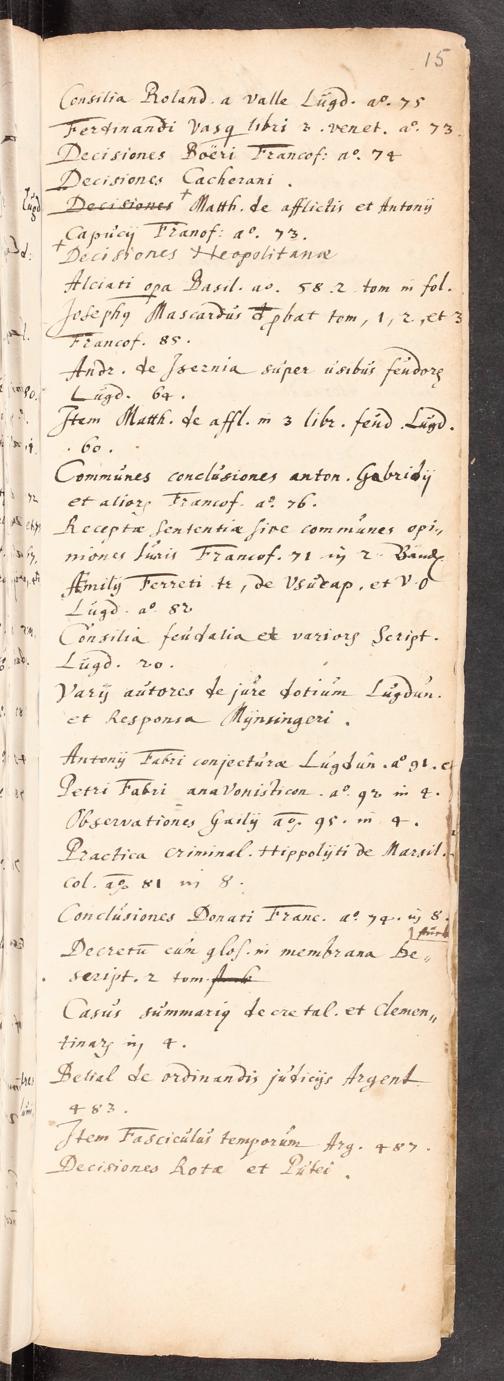 15
Consilia Roland. a Valle Lugd. aº. 75
Ferdinandi Vasq libri 3. venet. aº. 73.
Decisiones Boëri Francof: aº. 74
Decisiones Cacherani.
Decisiones + Matth. de afflictis et Antonij
Capucij Franof: aº. 73.
+ Decisiones Neopolitanæ
Alciati opa Basil. aº. 58. 2 tom in fol.
Josephq Mascardus pbat tom, 1, 2, et 3
Francof. 85.
Andr. de Isernia super usibus feudorꝝ
Lugd. 64.
Item Matth. de affl. in 3 libr. feud Lugd.
.60.
Communes conclusiones anton. Gabrielij
et aliorꝝ Francof. aº. 76.
Receptæ sententiæ sive communes opi„
niones Iuris Francof. 71 in 2 Band
Æmilij Ferreti tr, de Usucap. et V.O
Lugd. aº 82
Consilia feudalia et variorꝝ Script.
Lugd. 20.
Varij autores de jure dotium Lugdun.
et Responsa Mÿnsingeri.
Antonij Fabri conjecturæ Lugdun. aº 91. et
Petri Fabri anavonisticon. aº. 92 in 4.
Observationes Gailij aº. 95. in 4.
Practica criminal. Hippolÿti de Marsil.
col. aº 81 in 8.
Conclusiones Donati Franc. aº. 74. in 8.
Decretū cun glos. in membrana be„
script. 2 tom
Casus summariq decretal. et Clemen„
tinarꝝ in 4.
Belial de ordinandis judicijs Argent
483.
Item Fasciculus temporum Arg. 487.
Decisiones Rotæ et Putei.